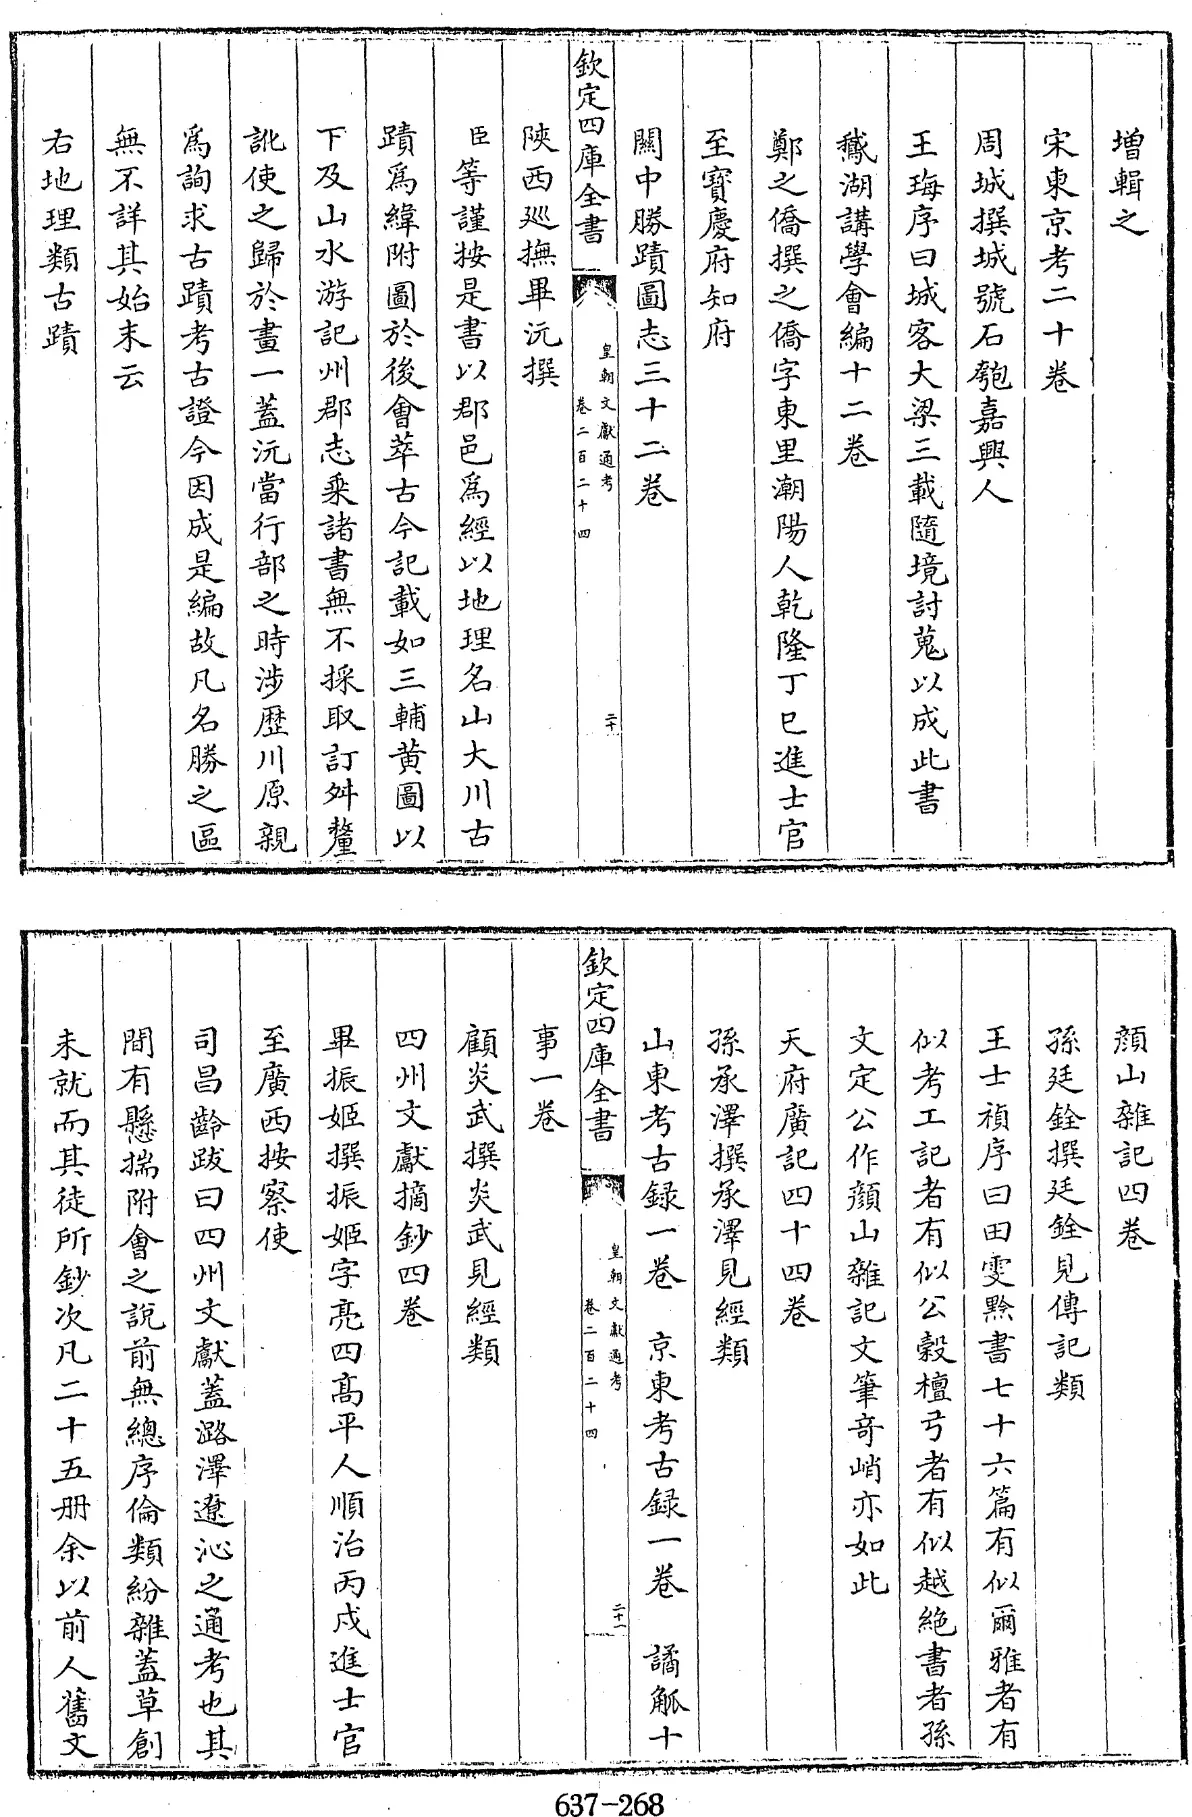 增輯之
宋東京考二十卷
周城撰城號石匏嘉興人
王珻序曰城客大梁三載隨境討蒐以成此書
鵞湖講學會編十二卷
鄭之僑撰之僑字東里潮陽人乾隆丁巳進士官
至寶慶府知府
關中勝蹟圖志三十二卷
欽定四庫全書
皇朝文獻通考
卷二百二十四
二十
陝西巡撫畢沅撰
臣等謹按是書以郡邑爲經以地理名山大川古
蹟爲緯附圖於後會萃古今記載如三輔黄圖以
下及山水游記州郡志乘諸書無不採取訂舛釐
訛使之歸於畫一蓋沅當行部之時涉歴川原親
爲詢求古蹟考古證今因成是編故凡名勝之區
無不詳其始末云
右地理類古蹟
顔山雜記四卷
孫廷銓撰廷銓見傳記類
王士禎序曰田雯黔書七十六篇有似爾雅者有
似考工記者有似公穀檀弓者有似越絶書者孫
文定公作顔山雜記文筆竒峭亦如此
天府廣記四十四卷
孫承澤撰承澤見經類
山東考古録一卷　京東考古録一卷　譎觚十
欽定四庫全書
皇朝文獻通考
卷二百二十四
二十一
事一卷
顧炎武撰炎武見經類
四州文獻摘鈔四卷
畢振姬撰振姬字亮四髙平人順治丙戌進士官
至廣西按察使
司昌齡跋曰四州文獻蓋潞澤遼沁之通考也其
間有懸揣附會之說前無總序倫類紛雜蓋草創
未就而其徒所鈔次凡二十五册余以前人舊文
637-268